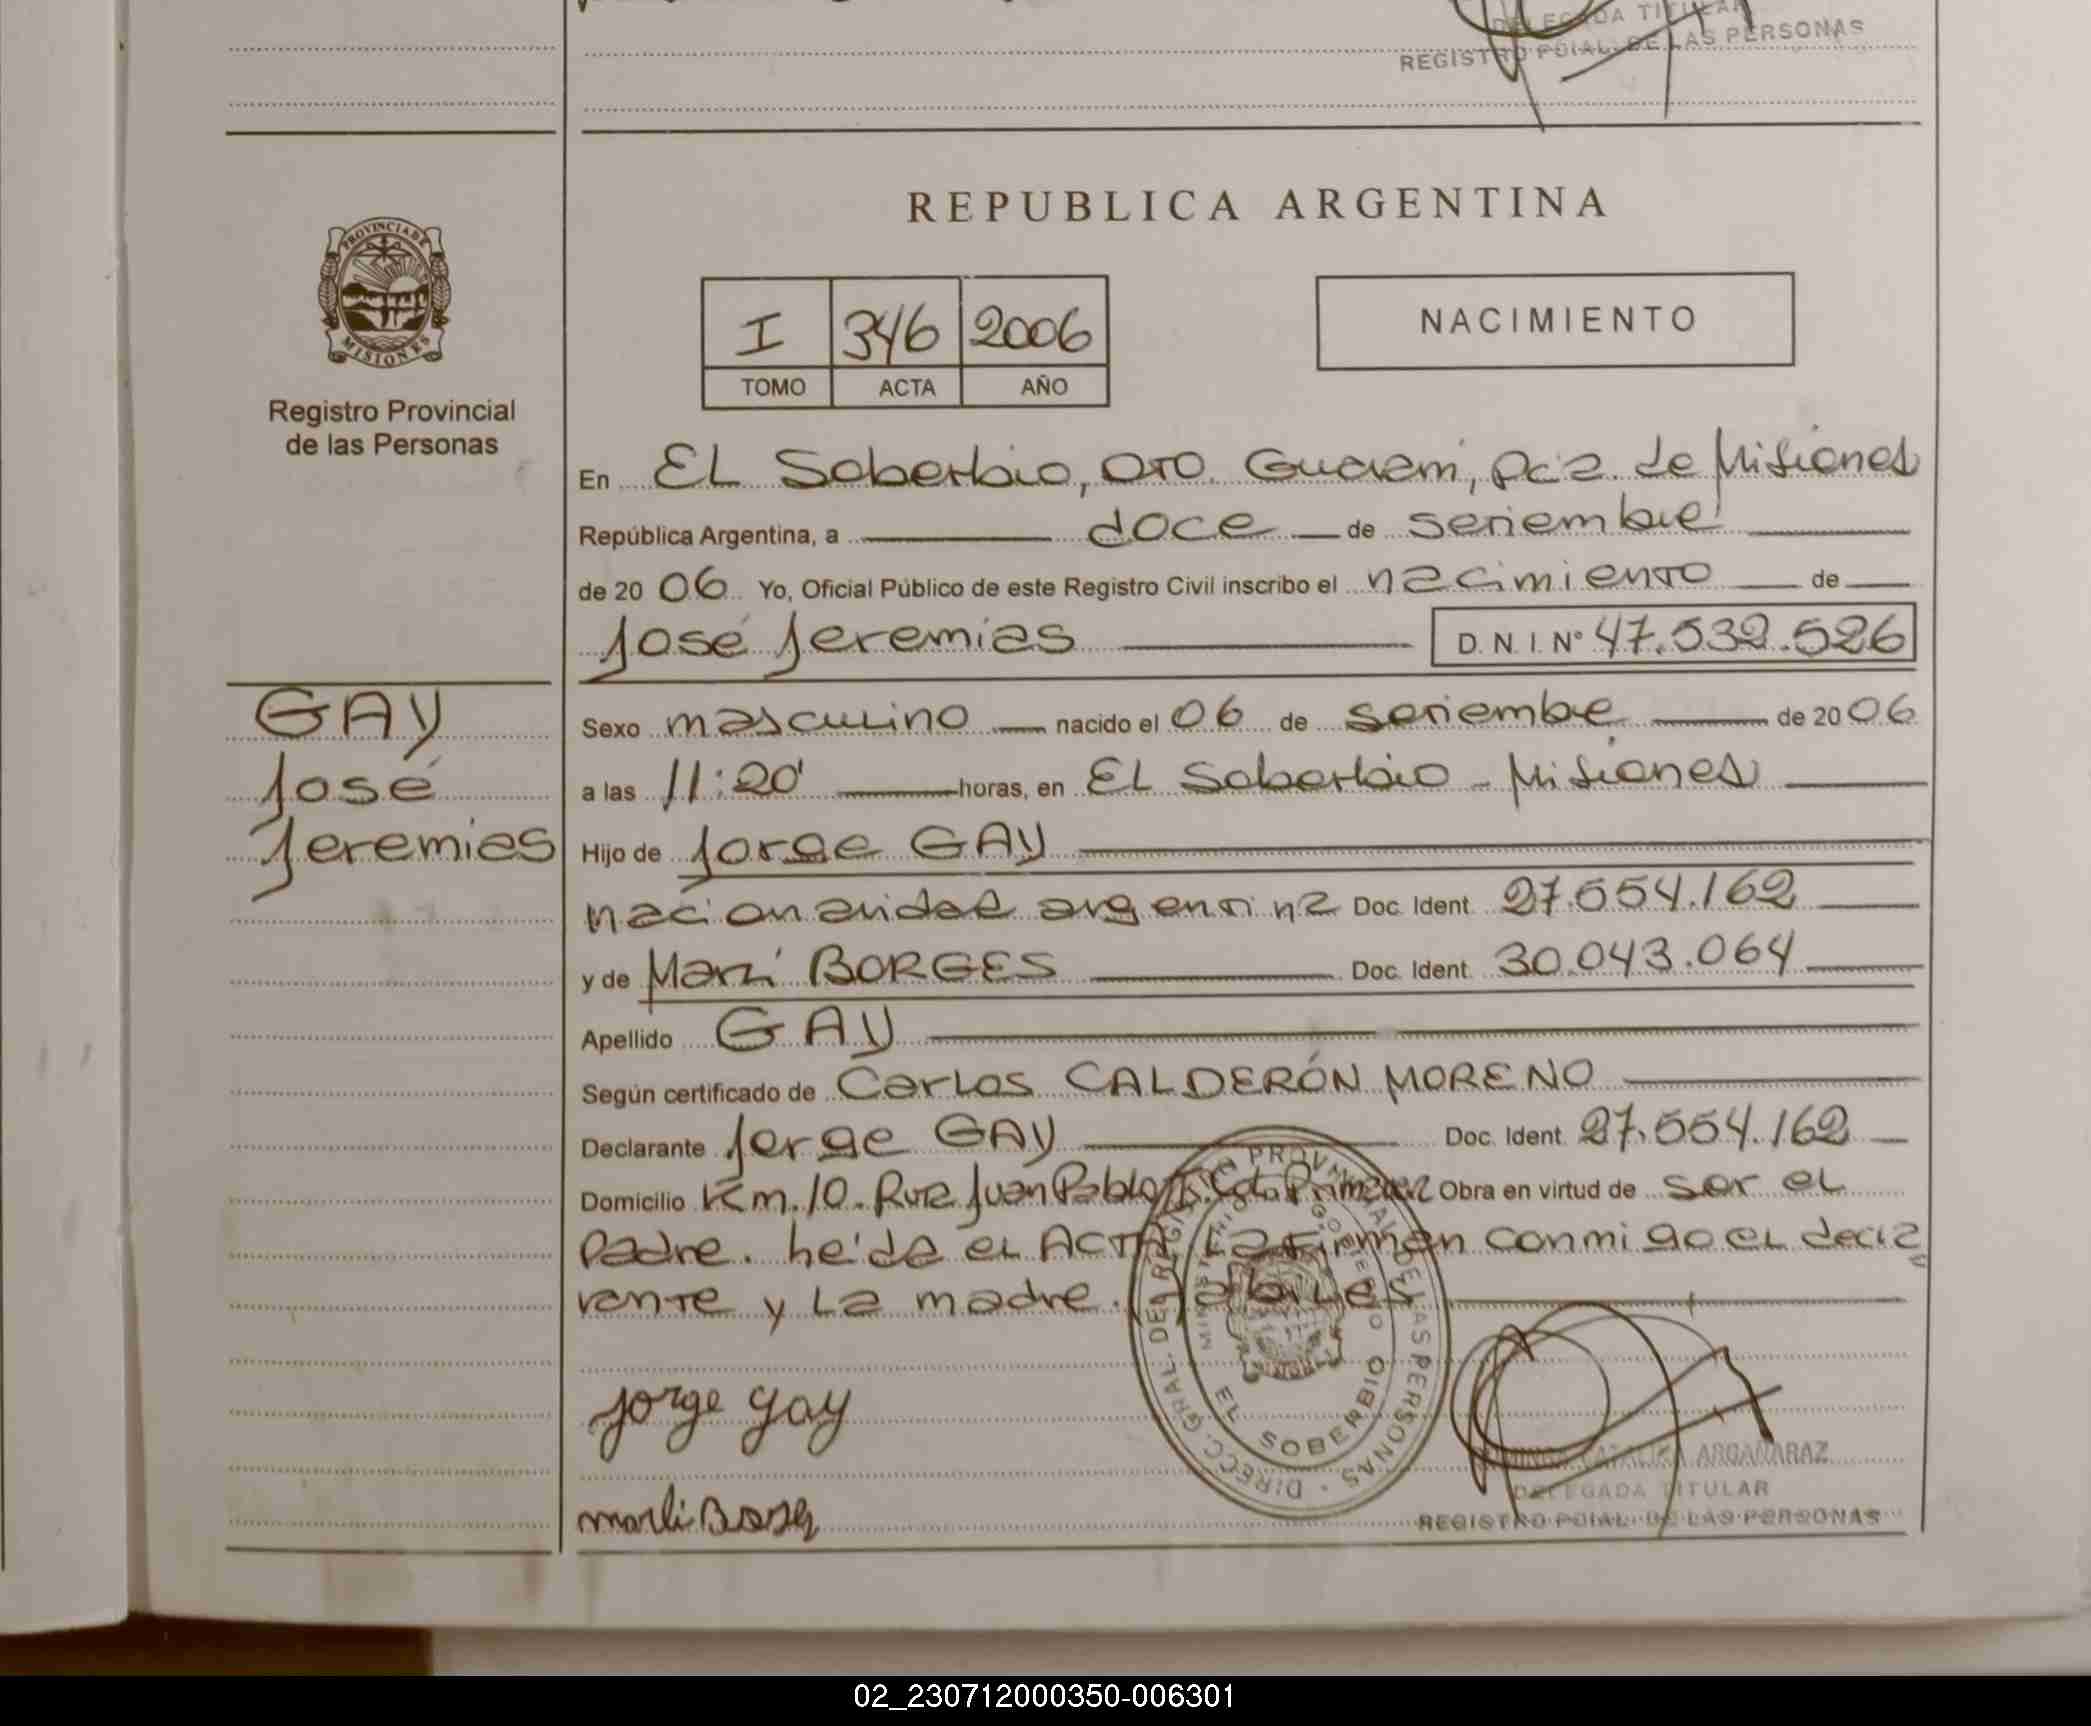 DELEGADA TITULAR
REGISTRO PCIAL. DE LAS PERSONAS
PROVINCIA DE
MISIONES
Registro Provincial
de las Personas
REPUBLICA ARGENTINA
I 346 2006
TOMO ACTA AÑO
NACIMIENTO
En EL Soberbio, DTO. Guaraní, Pcia. de Misiones
República Argentina, a doce de setiembre
de 2006 Yo, Oficial Público de este Registro Civil inscribo el nacimiento de
José Jeremías D.N.I. N° 47.532.526
GAY
José
Jeremias
Sexo masculino nacido el 06 de setiembre de 2006
a las 11:20' horas, en EL Soberbio - Misiones
Hijo de Jorge GAY
nacionalidad argentina Doc. Ident. 27.554.162
y de Marli BORGES Doc. Ident. 30.043.064
Apellido GAY
Según certificado de Carlos CALDERÓN MORENO
Declarante Jorge GAY Doc. Ident. 27.554.162
Domicilio Km. 10. Ruta Juan Pablo II. Cota Primavera Obra en virtud de ser el
Padre. Leída el ACTA, La Firman conmigo el decla
rante y La madre. Hábiles
DIRECC. GRAL. DEL REGISTRO PROVINCIAL DE LAS PERSONAS
MINISTERIO GOBIERNO
EL SOBERBIO
Jorge gay
marli
CATALINA ARGAÑARAZ
DELEGADA TITULAR
REGISTRO PCIAL. DE LAS PERSONAS
02_230712000350-006301